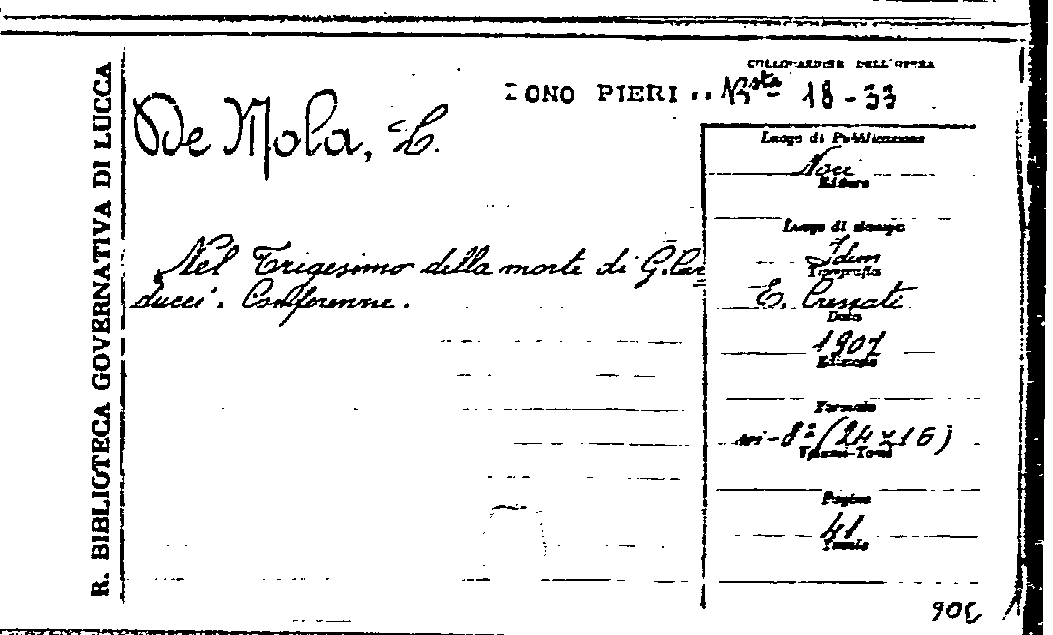 R. BIBLIOTECA GOVERNATIVA DI LUCCA
COLLOCAZIONE DELL'OPERA
DONO PIERI .. Bsta 18-33
De Mola, L.
Nel Trigesimo della morte di G. Car=
ducci. Conferenne.
Luogo di Pubblicazione
Noci
Editore
Luogo di stampa
Idem
Tipografia
E. Cressati
Data
1907
Edizione
Formato
in-8º (24x16)
Volumi-Tomi
Pagine
41
Tavole